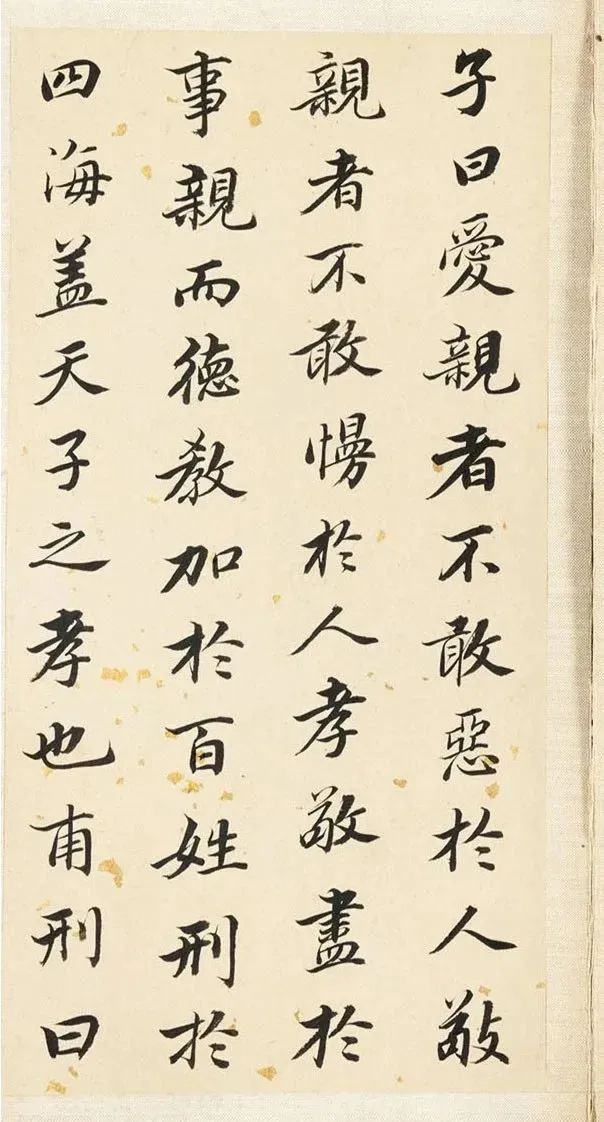 子曰愛親者不敢惡於人敬
親者不敢慢於人孝敬盡於
事親而德教加於百姓刑於
四海蓋天子之孝也甫刑曰